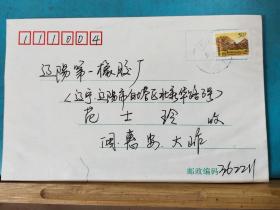 111004
50
辽阳第一橡胶厂
(辽宁.辽阳市白塔区北新华路3号)
范士玲 收
闻惠安大昨
邮政编码 362211